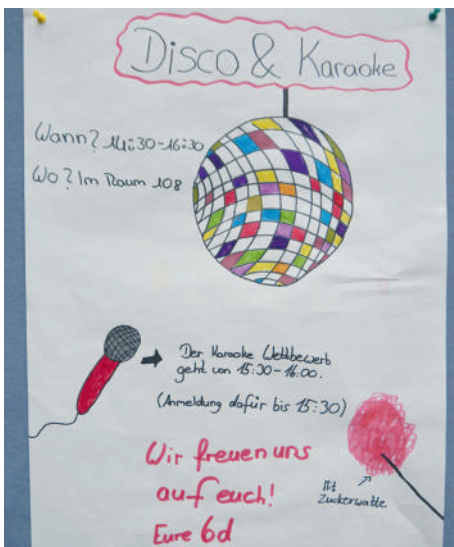 Disco & Karaoke
Wann? 14:30-16:30
Wo? Im Raum 108
Der Karaoke Wettbewerb
geht von 15:30-16:00.
(Anmeldung dafür bis 15:30)
Wir freuen uns
auf euch!
Eure 6d
Mit
Zuckerwatte